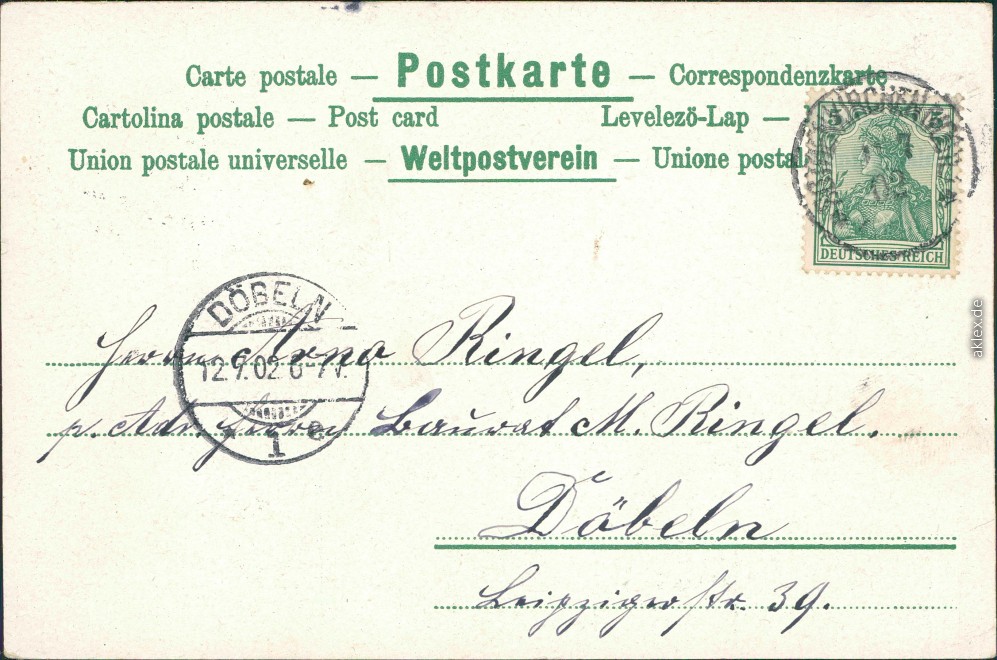 Carte postale — Postkarte — Correspondenzkarte
Cartolina postale — Post card Levelezö-Lap —
Union postale universelle — Weltpostverein — Unione postal
5 5
DEUTSCHES REICH
DÖBELN
12.7.02 6-7V.
1 e
Herrn Arno Ringel,
p. Adr. Herrn Baurat M. Ringel.
Döbeln
Leipzigerstr. 39.
aklex.de